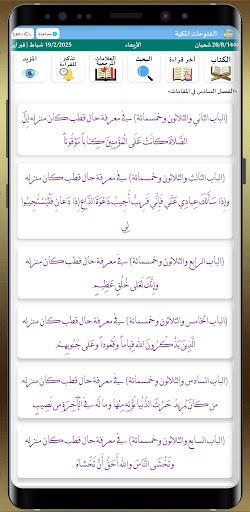 الفتوحات المكية
مساعدة
الأربعاء
19/2/2025 شباط | فبراير
الكتاب
آخر قراءة
البحث
العلامات المرجعية
تذكير للقراءة
المزيد
«الفصل السادس في المقامات»
(الباب الثاني والثلاثون وخمسمائة) في معرفة حال قطب كان منزله إنَّ
الصَّلاةَ كانَتْ عَلَى الْمُؤْمِنِينَ كِتاباً مَوْقُوتاً
(الباب الثالث والثلاثون وخمسمائة) في معرفة حال قطب كان منزله
وإِذا سَأَلَكَ عِبادِي عَنِّي فَإِنِّي قَرِيبٌ أُجِيبُ دَعْوَةَ الدَّاعِ إِذا دَعانِ فَلْيَسْتَجِيبُوا
لِي
(الباب الرابع والثلاثون وخمسمائة) في معرفة حال قطب كان منزله
وإِنَّكَ لَعَلى خُلُقٍ عَظِيمٍ
(الباب الخامس والثلاثون وخمسمائة) في معرفة حال قطب كان منزله
الَّذِينَ يَذْكُرُونَ اللهَ قِياماً وقُعُوداً وعَلى جُنُوبِهِمْ
(الباب السادس والثلاثون وخمسمائة) في معرفة حال قطب كان منزله
مَن كانَ يُرِيدُ حَرْثَ الدُّنْيا نُؤْتِهِ مِنْها وما لَهُ فِي الْآخِرَةِ مِن نَصِيبٍ
(الباب السابع والثلاثون وخمسمائة) في معرفة حال قطب كان منزله
وتَخْشَى النَّاسَ واللهُ أَحَقُّ أَنْ تَخْشاهُ